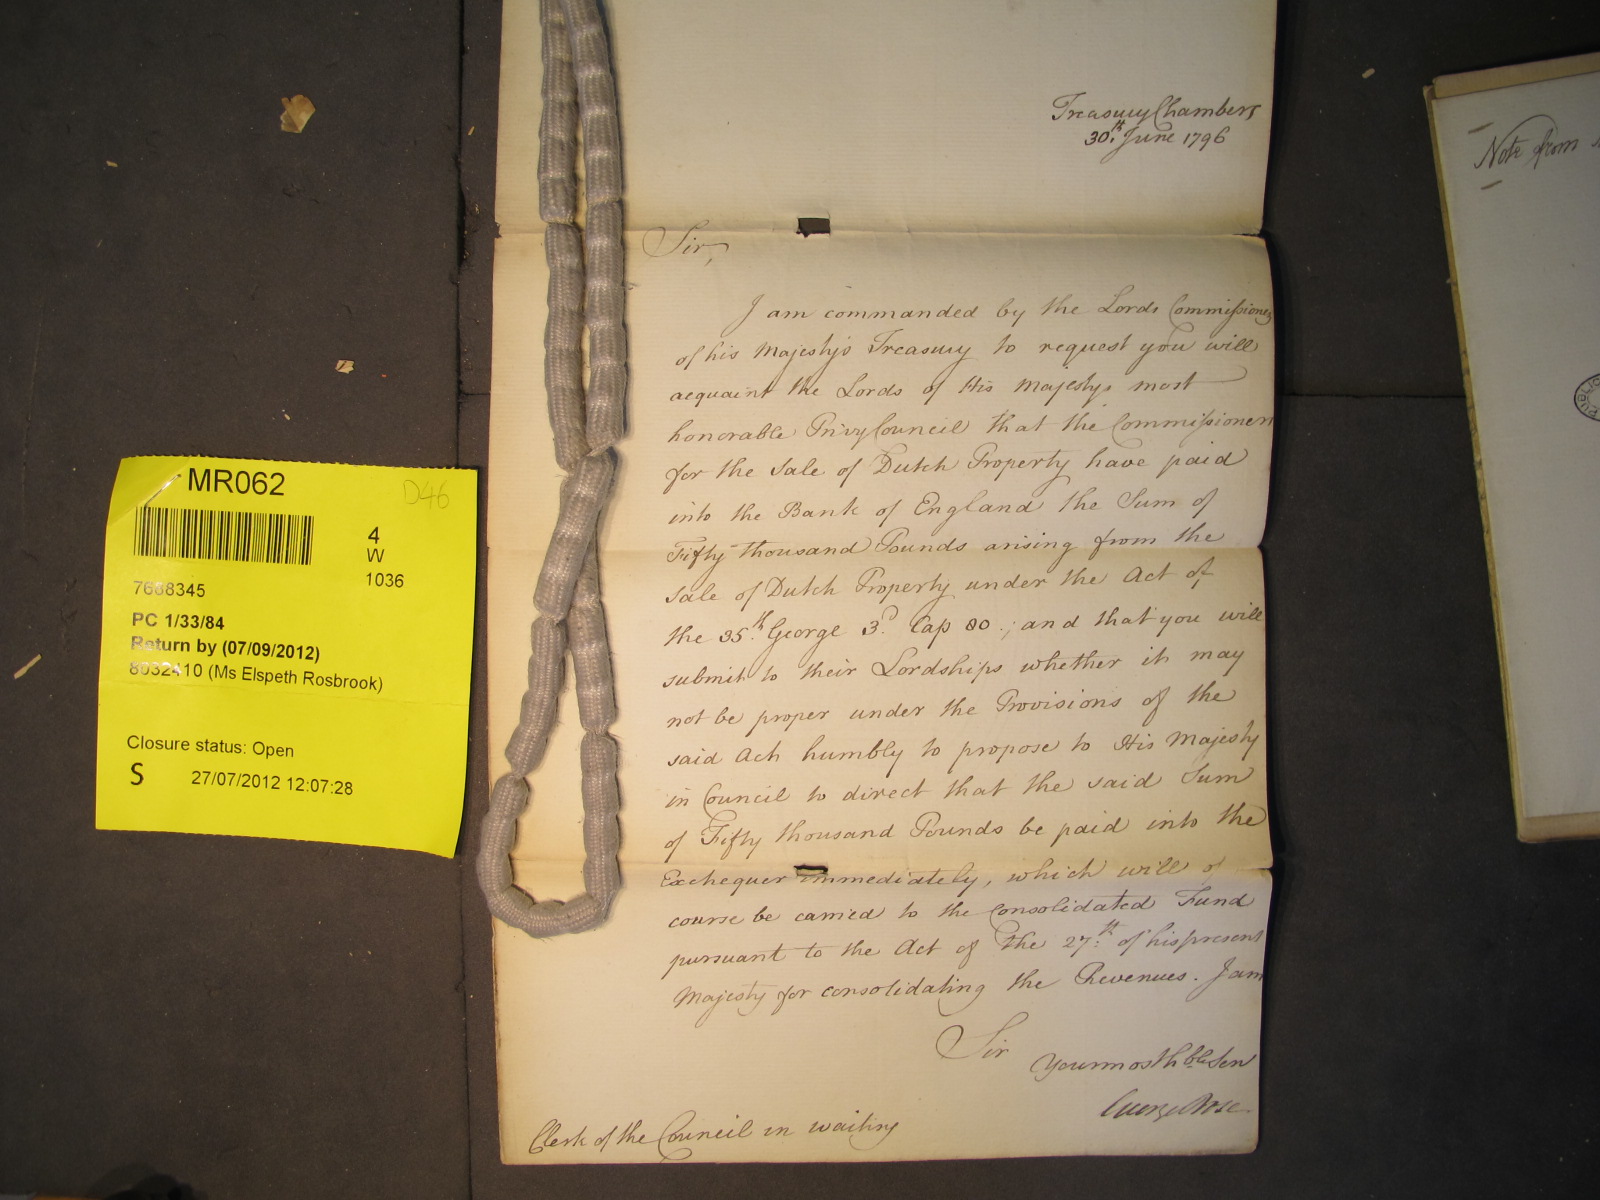 Treasury Chambers
30.th June 1796
Sir,
I am commanded by the Lords Commissioners
of his Majesty's Treasury to request you will
acquaint the Lords of His Majestys most
honorable Privy Council that the Commissioners
for the Sale of Dutch Property have paid
into the Bank of England the Sum of
Fifty thousand Pounds arising from the
Sale of Dutch Property under the Act of
the 35.th George 3.d Cap 80.; and that you will
submit to their Lordships whether it may
not be proper under the Provisions of the
said Act humbly to propose to His Majesty
in Council to direct that the said Sum
of Fifty thousand Pounds be paid into the
Exchequer immediately, which will of
course be carried to the Consolidated Fund
pursuant to the Act of the 27.th of his present
Majesty for consolidating the Revenues. I am
Sir
Your most hble Ser
George Rose
Clerk of the Council in waiting
MR062
D46
4
W
1036
7668345
PC 1/33/84
Return by (07/09/2012)
8032410 (Ms Elspeth Rosbrook)
Closure status: Open
S 27/07/2012 12:07:28
Note from
PUBLIC